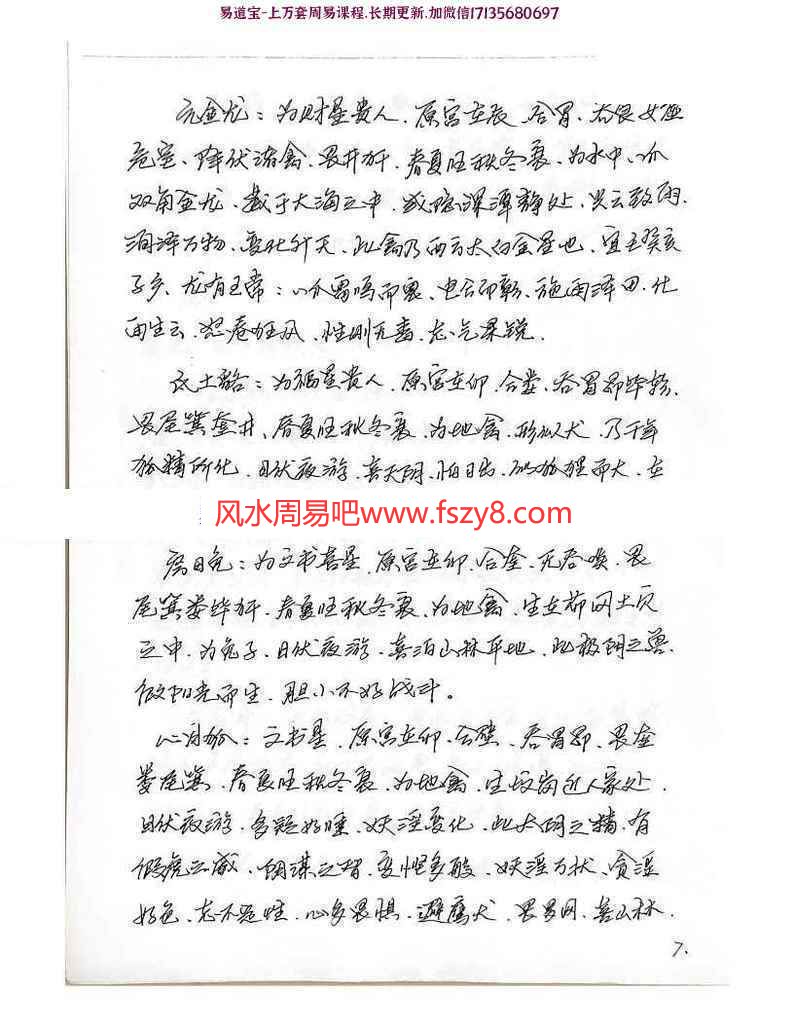 易道宝-上万套周易课程.长期更新.加微信17135680697
亢金龙：为财星贵人、原宫在辰、合胃、吞畏女虚
危室、降伏诸禽、畏井轩、春夏旺秋冬衰、为水中
双角金龙、于大海之中、或隐深潭静处、兴云致雨
润泽万物、变化升天、此禽乃西方太白金星也、宜壬癸亥
子乡、龙有王常：鸣而、电合而、施雨泽田、化
雨生云、怒卷狂风、性刚无毒、
氐土貉：为福星贵人、原宫在卯、合娄、吞胃昴毕轸、
畏尾箕奎井、春夏旺秋冬衰、为地禽、形似犬、乃千年
狐精所化、日伏夜游、喜天阴、怕日出、狐狸而大、在
风水周易吧www.fszy8.com
房日兔：为文书喜星、原宫在卯、合奎、无吞啖、畏
尾箕娄毕轩、春夏旺秋冬衰、为地禽、生在
之中、为兔子、日伏夜游、喜泊山林平地、此极阴之兽、
阳光而生、胆小不好战斗。
心月狐：文书星、原宫在卯、合壁、吞胃昴、畏奎
娄尾箕、春夏旺秋冬衰、为地禽、生坟岗近人家处、
日伏夜游、多疑好睡、妖淫变化、此太阴之精、有
假虎之威、阴谋之智、变怪多般、妖淫万状、贪淫
好色、心多畏惧、避鹰犬、畏罗网、喜山林、
7.